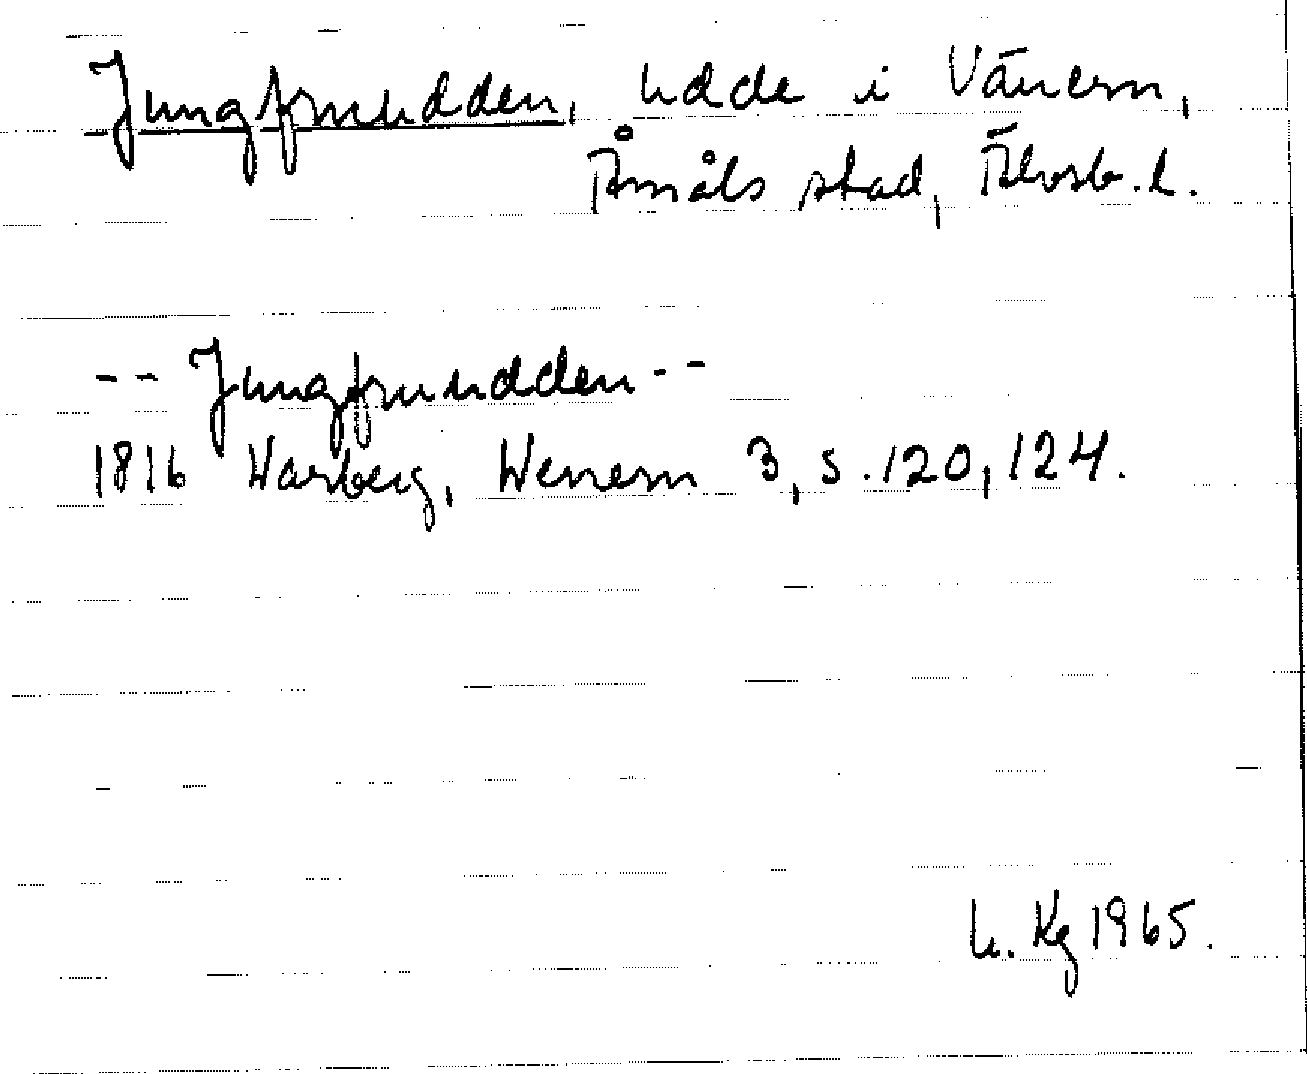 Jungfruudden, udde i Vänern,
Åmåls stad, Älvsb. l.
-- Jungfruudden --
1816 Warberg, Wenern 3, s. 120, 124.
L. Kg 1965.